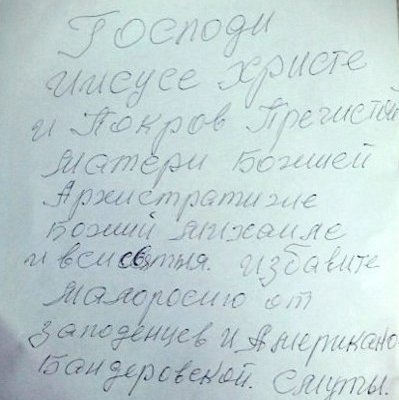 Господи
Иисусе Христе
и Покров Пречистой
Матери Божией
Архистратиже
Божий Михаиле
и вси святыя. избавите
Малоросию от
заподенцев и Американо
Бандеровской. Смуты.